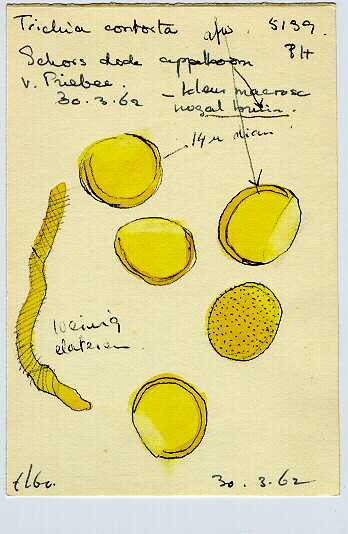 Trichia contorta afw. 5139.
Schors dode appelboom
v. Priebee.
30.3.62 – kleur macrosc
nogal bruin.
14 µ diam
weinig
elateren
30.3.62